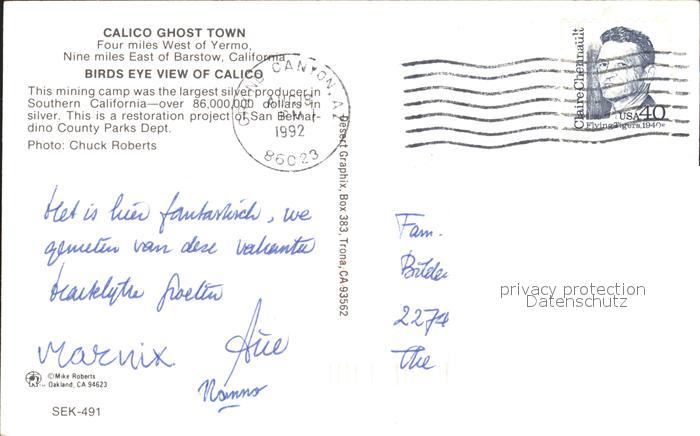 CALICO GHOST TOWN
Four miles West of Yermo,
Nine miles East of Barstow, California
BIRDS EYE VIEW OF CALICO
This mining camp was the largest silver producer in
Southern California—over 86,000,000 dollars in
silver. This is a restoration project of San Bernar-
dino County Parks Dept.
Photo: Chuck Roberts
CANYON, AZ
PM
1992
86023
Claire Chennault
USA 40
Flying Tigers, 1940s
Desert Graphix, Box 383, Trona, CA 93562
Het is hier fantastisch, we
genieten van deze vakantie
hartelijke groeten
Marnix
Nanno
Fam.
2274
The
privacy protection
Datenschutz
©Mike Roberts
Oakland, CA 94623
SEK-491